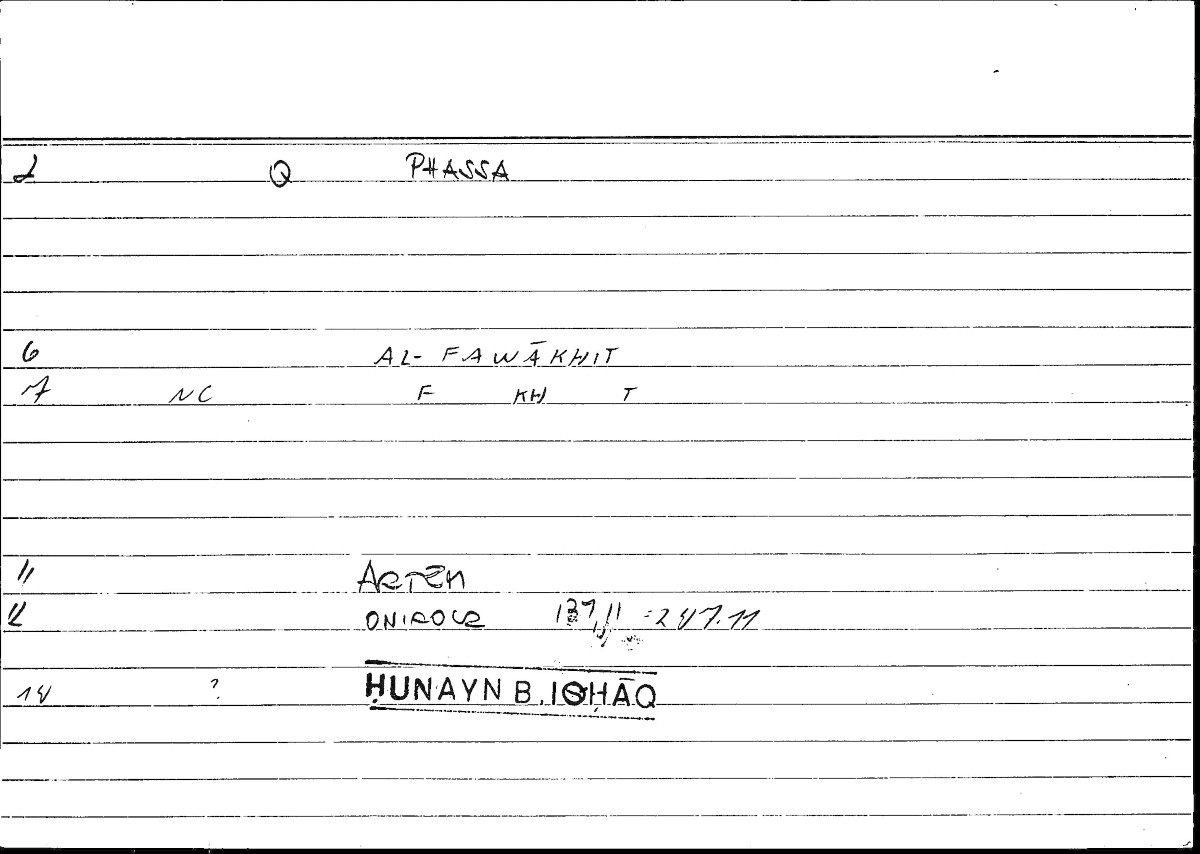 2 Q PHASSA
6 AL- FAWĀKHIT
7 NC F KH T
11 ARTEM
12 ONIROCR 137,11 =247.11
14 ? ḤUNAYN B. ISḤĀQ